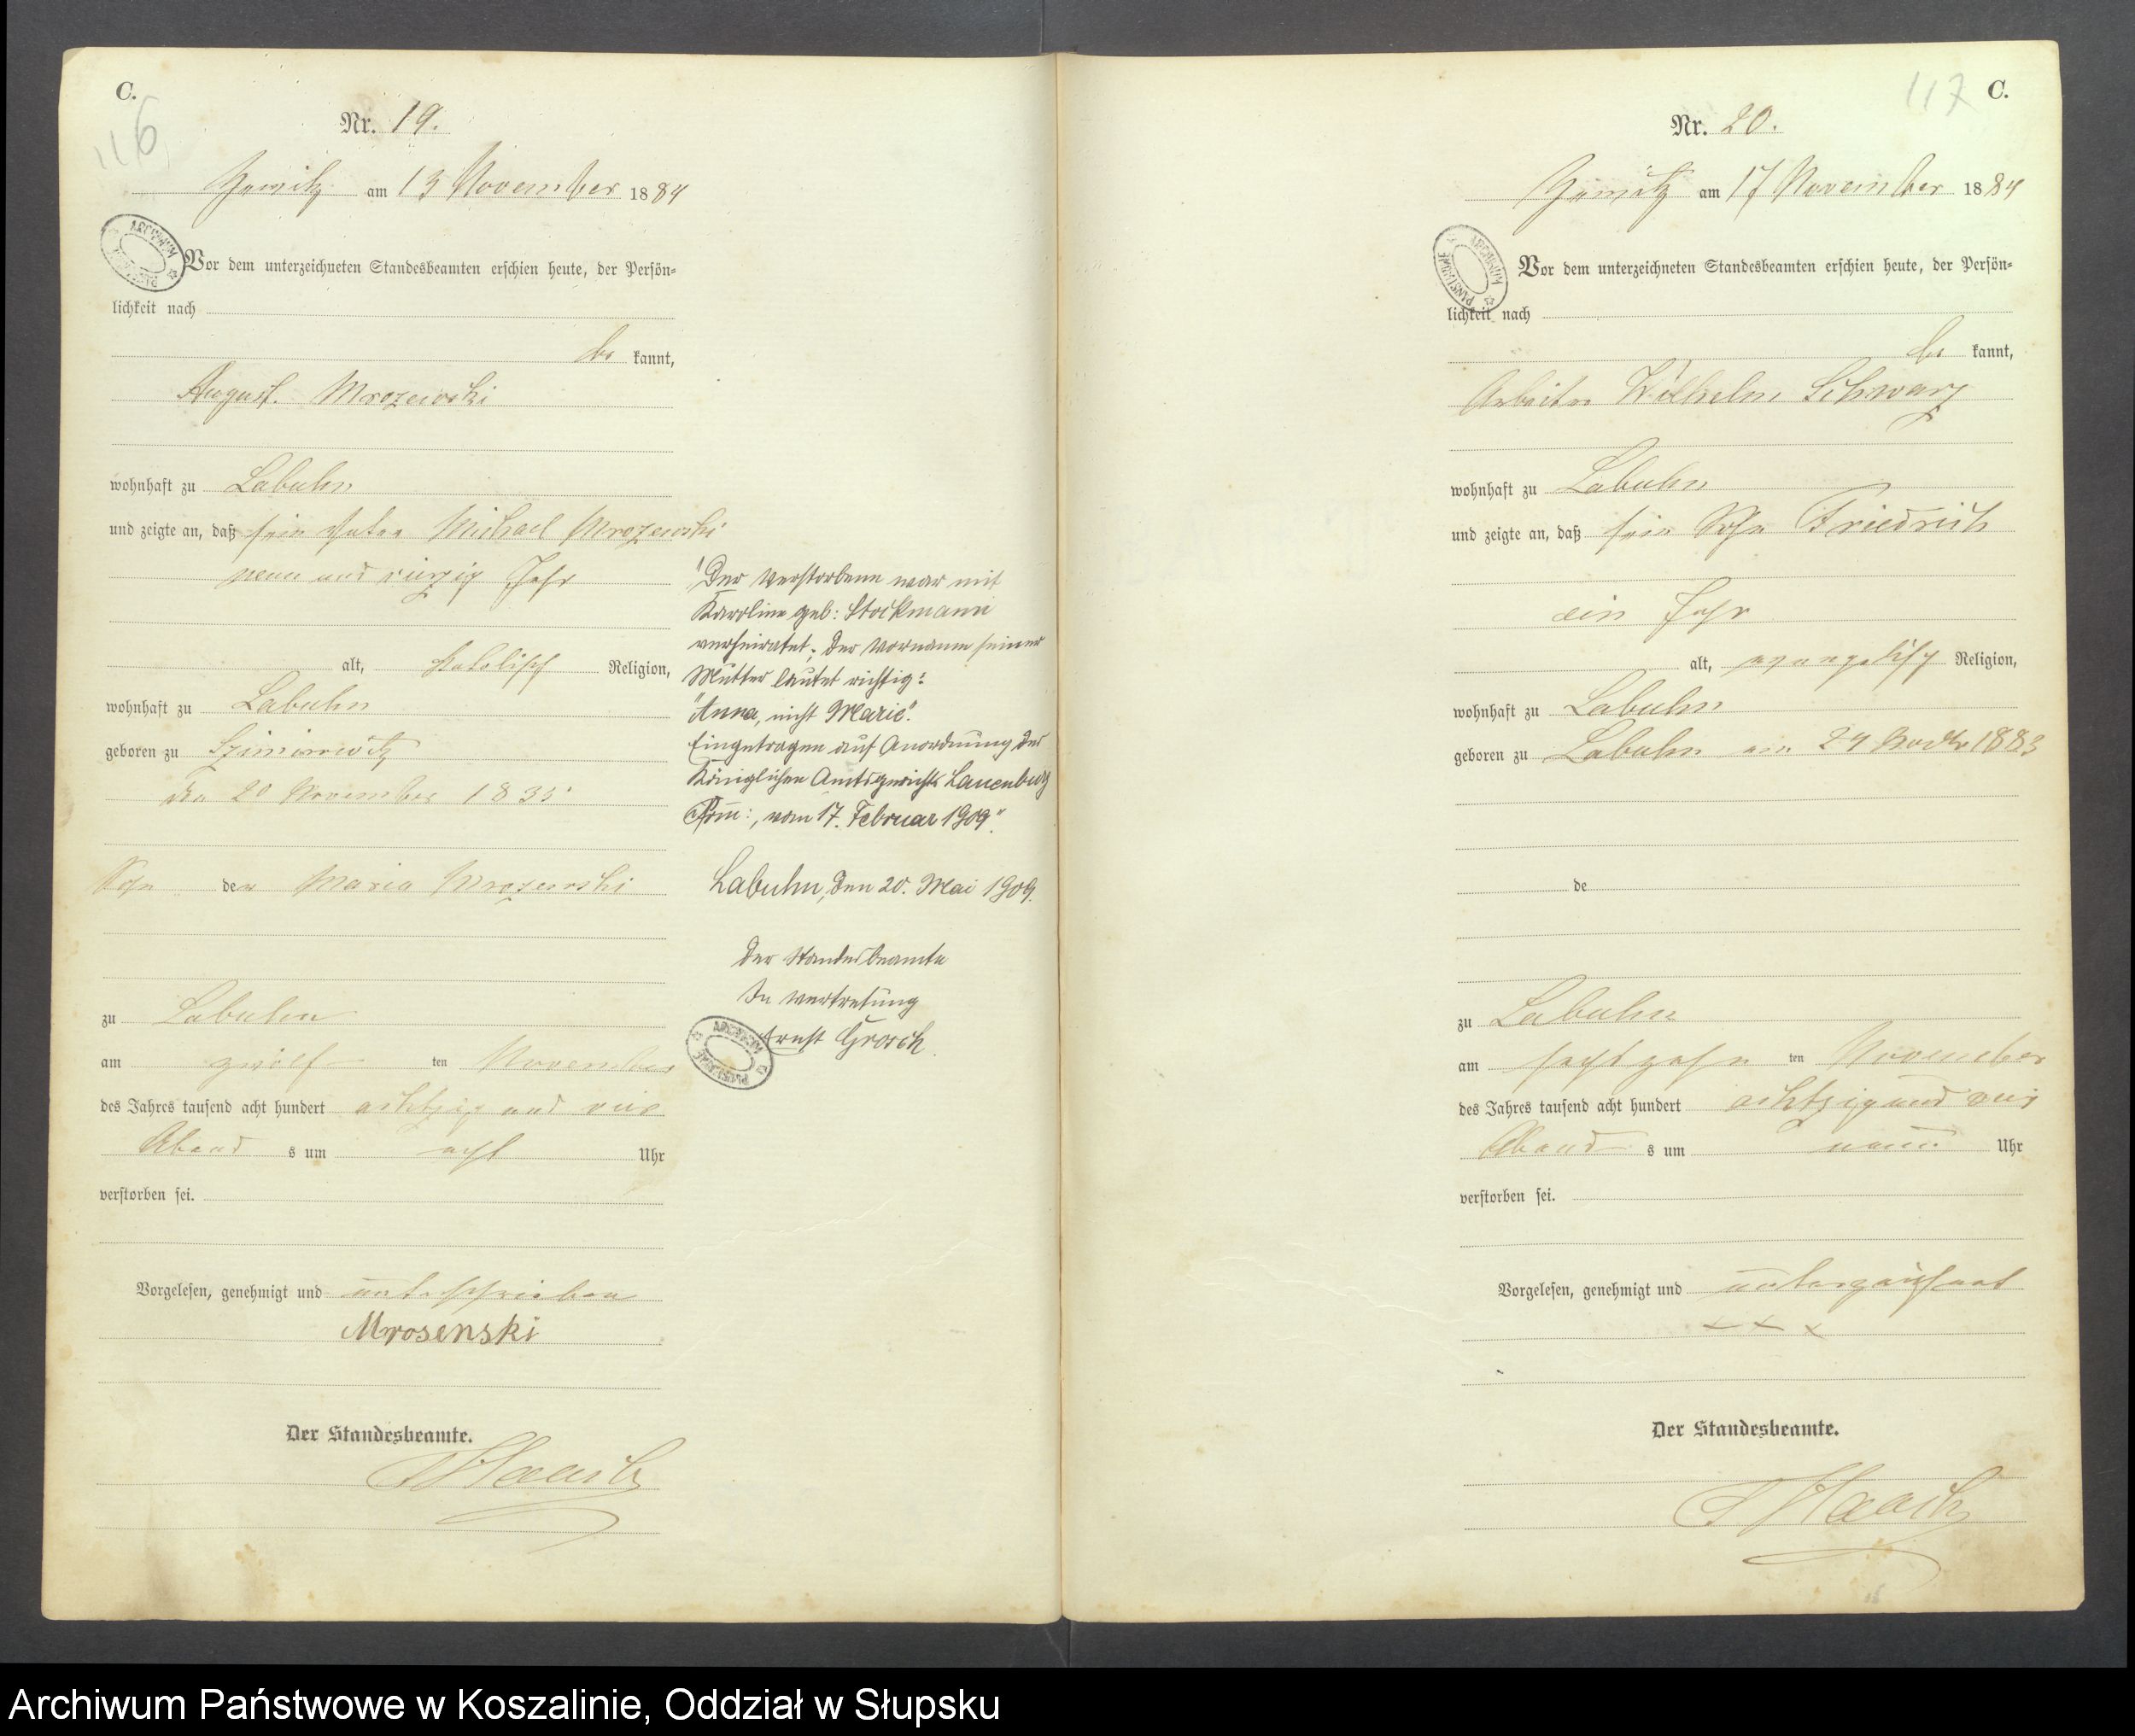 C.
116
Nr. 19.
am 13 November 1884
Vor dem unterzeichneten Standesbeamten erschien heute, der Persön-
lichkeit nach
be kannt,
August Mrozewski
wohnhaft zu Labuhn
und zeigte an, daß sein Vater Michael Mrozewski
neun und vierzig Jahr
alt, katolisch Religion,
wohnhaft zu Labuhn
geboren zu
den 20 November 1835
Sohn der Maria Mrozewski
zu Labuhn
am zwölf ten November
des Jahres tausend acht hundert achtzig und vier
Abend s um acht Uhr
verstorben sei.
Vorgelesen, genehmigt und unterschrieben
Mrosenski
Der Standesbeamte.
Der Verstorbene war mit
Karoline geb: Stockmann
verheiratet; der Vorname seiner
Mutter lautet richtig:
"Anna, nicht Marie".
Eingetragen auf Anordnung des
Königlichen Amtsgerichts Lauenburg
Pom:, vom 17. Februar 1909".
Labuhn, den 20. Mai 1909.
Der Standesbeamte
In Vertretung
Ernst Grosch
117
C.
Nr. 20.
am 17 November 1884
Vor dem unterzeichneten Standesbeamten erschien heute, der Persön-
lichkeit nach
be kannt,
Arbeiter Wilhelm Schwarz
wohnhaft zu Labuhn
und zeigte an, daß sein Sohn Friedrich
ein Jahr
alt, evangelisch Religion,
wohnhaft zu Labuhn
geboren zu Labuhn am 24 1883
de
zu Labuhn
am sechzehn ten November
des Jahres tausend acht hundert achtzig und vier
Abend s um neun Uhr
verstorben sei.
Vorgelesen, genehmigt und unterzeichnet
x x x
Der Standesbeamte.
Archiwum Państwowe w Koszalinie, Oddział w Słupsku